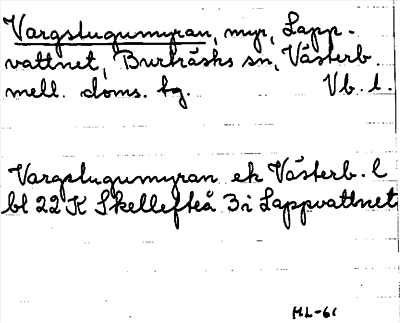 Vargstugumyran, myr, Lapp-
vattnet, Burträsks sn, Västerb
mell. doms. tg. Vb. l.
Vargstugumyran ek Västerb. l
bl 22 K Skellefteå 3i Lappvattnet
ML-61